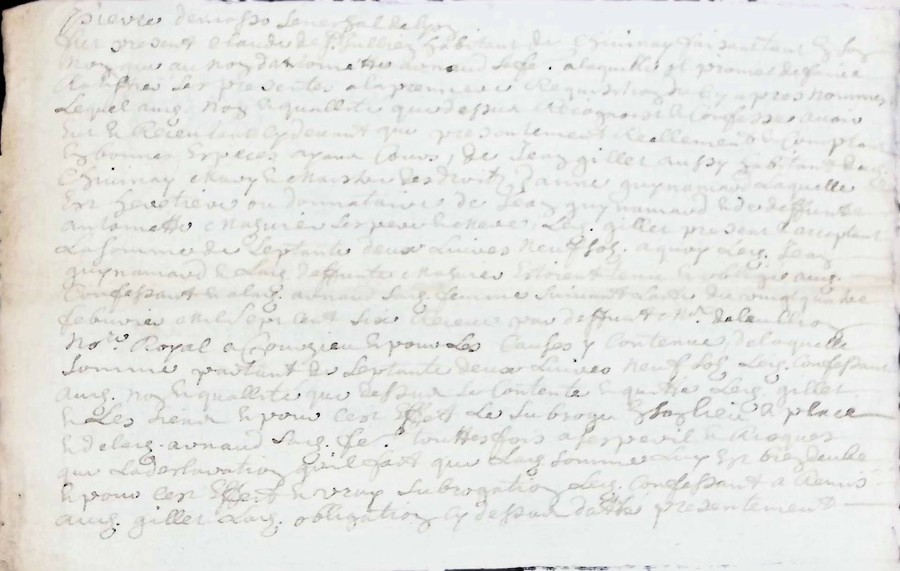 pierre demasso Senechal de Lyon
fut present Claude de St Jullien habitant de faisant tant en son
nom que au nom dantoinette arnaud sa fe. a laquelle il promet de faire
Ratiffier les presentes a la premiere Requisition du cy apres nommes
Lequel aud. nom & quallitté que dessus a Recogneu & Confesse avoir
eut & Receu tant cy devant que presentement & Reellement & Comptant
en bonnes Especes ayant Cours, de Jean gillet aussy habitant dud.
mary & Maistre des droits Danne guynamaud laquelle
Est heretiere ou donnataire de Jean guynamaud & de deffunte
antoinette Masurier ses pere & mere, Led. gillet present & acceptant
La somme de Septante deux Livres neuf sols a quoy Led. Jean
guynamaud & Lad. deffunte Masurier Estoient tenu & obligé aud.
Confessant & a lad. arnaud sad. femme suivant Lacte du vingt quatre
febvrier Mil Sept cent six Receu par deffunt Me.
Nore. Royal a & pour Les Causes y Contenue, de laquelle
Somme partant de Septante deux Livres neuf sols Led. Confessant
aud. nom & quallitté que dessus se Contente & quitte Led. gillet
& Les siens & pour cest Effect Le subroge en son lieu & place
& de lad. arnaud sad. fe. touttesfois a ses peril & Risques
que La declaration quil fait que Lad. somme Luy est bien deube
& pour cest Effect & vray subrogation Led. Confessant a Remis
aud. gillet Lad. obligation cy dessus dattée presentement